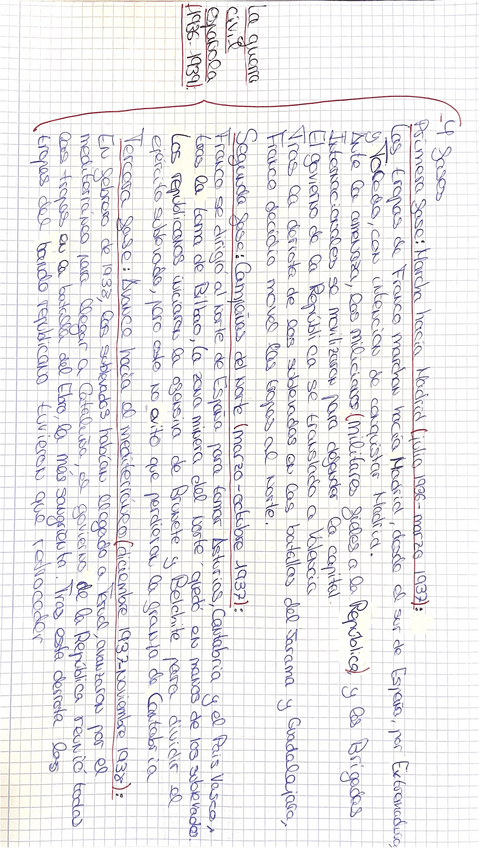 La guerra
civil
española
(1936-1939)
-4 fases
Primera fase: Marcha hacia Madrid (julio 1936-marzo 1937):
Las tropas de Franco marchan hacia Madrid, desde el sur de España, por Extremadura
y Toledo, con intención de conquistar Madrid.
Ante la amenaza, los milicianos (militares fieles a la República) y las Brigadas
Internacionales se movilizaron para defender la capital.
El gobierno de la República se translado a Valencia
Tras la derrota de los sublevados en las batallas del Jarama y Guadalajara,
Franco decidió mover las tropas al norte.
Segunda fase: Campañas del norte (marzo-octubre 1937):
Franco se dirigió al norte de España para tomar Asturias, Cantabria y el País Vasco,
tras la toma de Bilbao, la zona minera del norte quedó en manos de los sublevados.
Los republicanos iniciaron la ofensiva de Brunete y Belchite para dividir el
ejercito sublevado, pero esto no evito que perdieran la franja de Cantabria
Tercera fase: Avance hacia el mediterráneo (diciembre 1937-noviembre 1938):
En febrero de 1938, los sublevados habían llegado a Teruel, avanzaron por el
mediterráneo para llegar a Cataluña, el gobierno de la República reunió todas
sus tropas en la batalla del Ebro, la más sangrienta. Tras esta derrota las
tropas del bando republicano tuvieron que retroceder